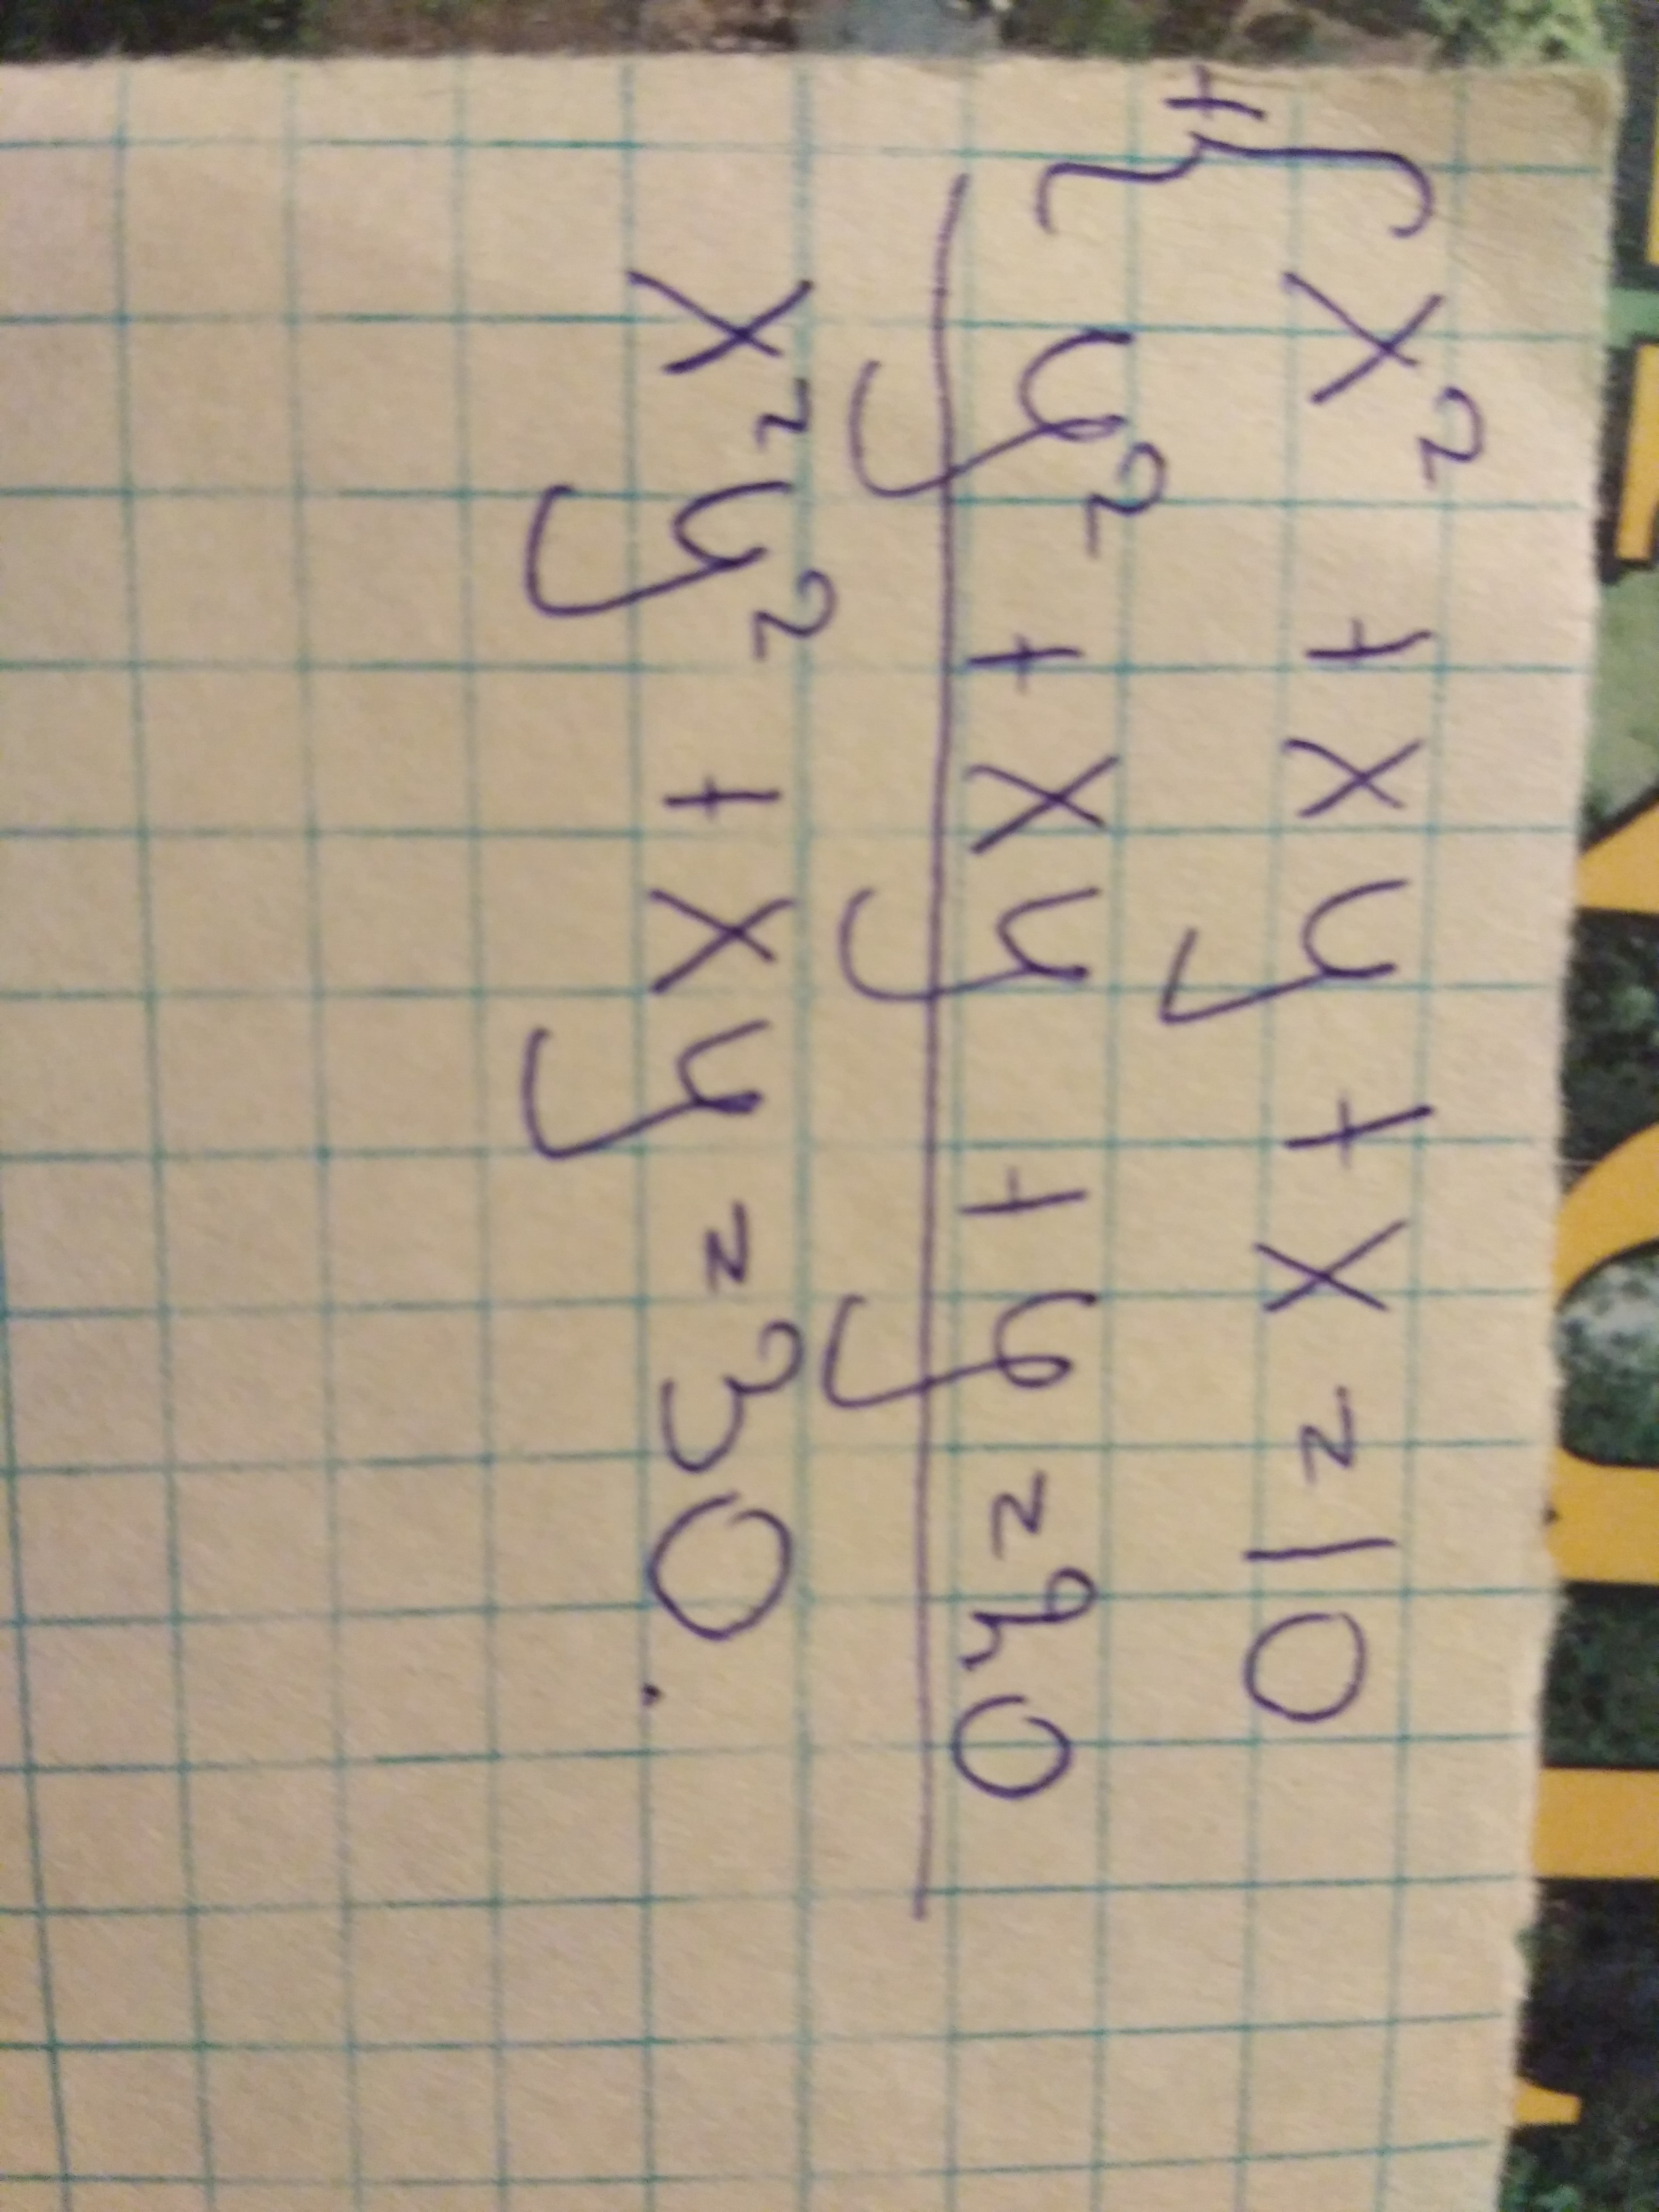 +{ x² + xy + x = 10
y² + xy + y = 20
x² y² + xy = 30.